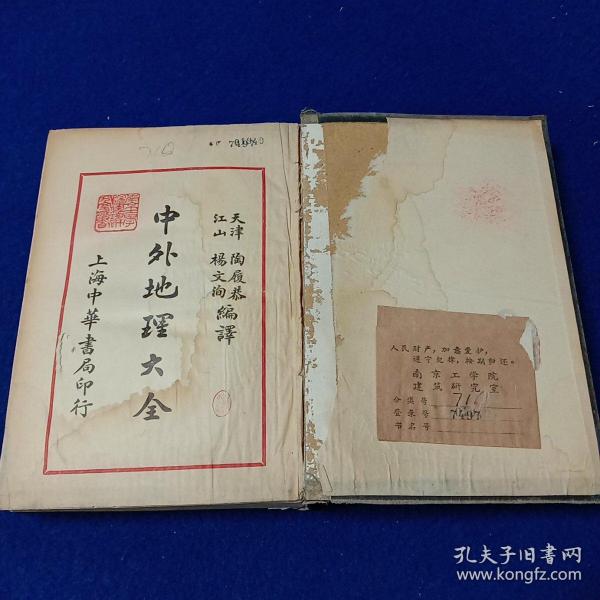 710
天津 陶履恭
江山 楊文洵
編譯
中外地理大全
上海中華書局印行
人民财产，加意爱护，
遵守纪律，按期归还。
南京工学院
建筑研究室
分类号 710
登录号 7497
书名号
孔夫子旧书网
www.kongfz.com